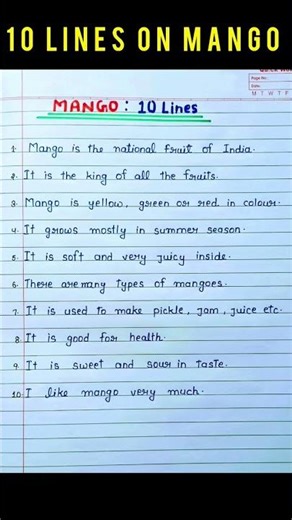 10 LINES ON MANGO
Page No.:
Date:
M T W T F
MANGO : 10 Lines
1. Mango is the national fruit of India.
2. It is the king of all the fruits.
3. Mango is yellow, green or red in colour.
4. It grows mostly in summer season.
5. It is soft and very juicy inside.
6. There are many types of mangoes.
7. It is used to make pickle, jam, juice etc.
8. It is good for health.
9. It is sweet and sour in taste.
10. I like mango very much.